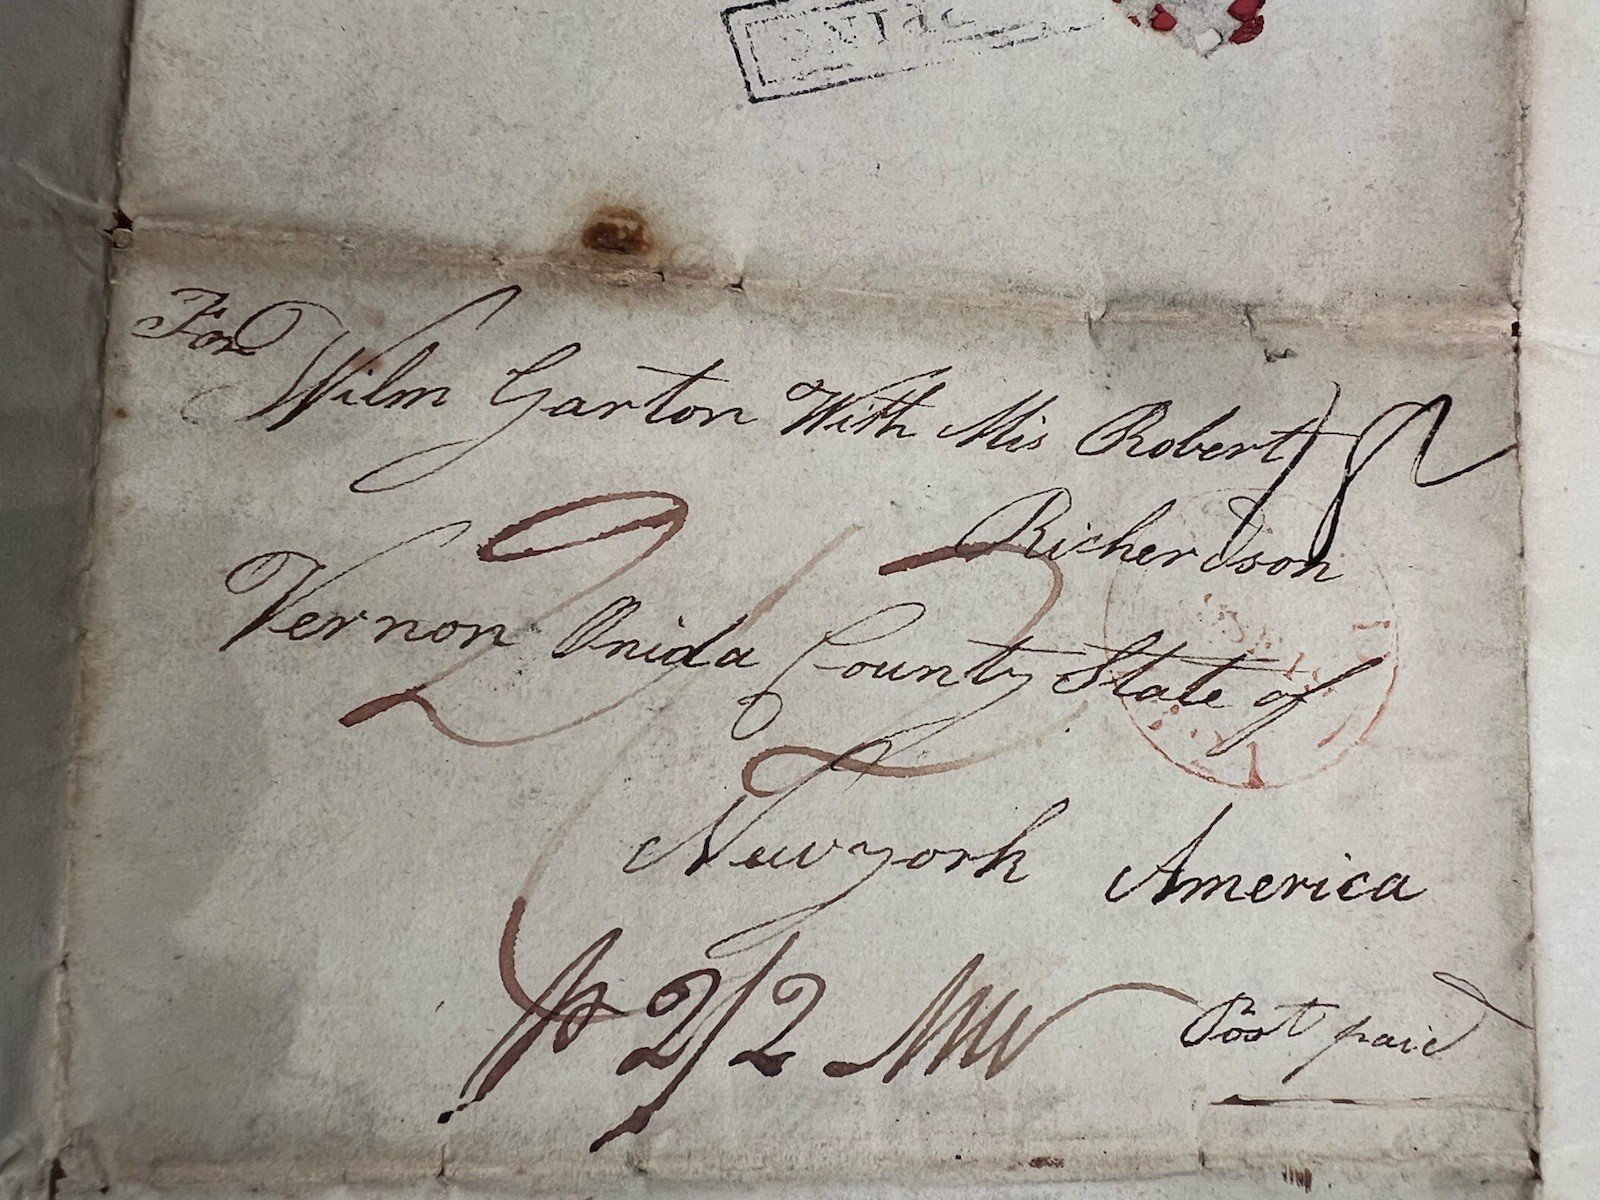 For
Wilm Garton With Mis Robert
Richerdson
Vernon Onida County State of
Newyork America
2/3
P 2/2
Post paid